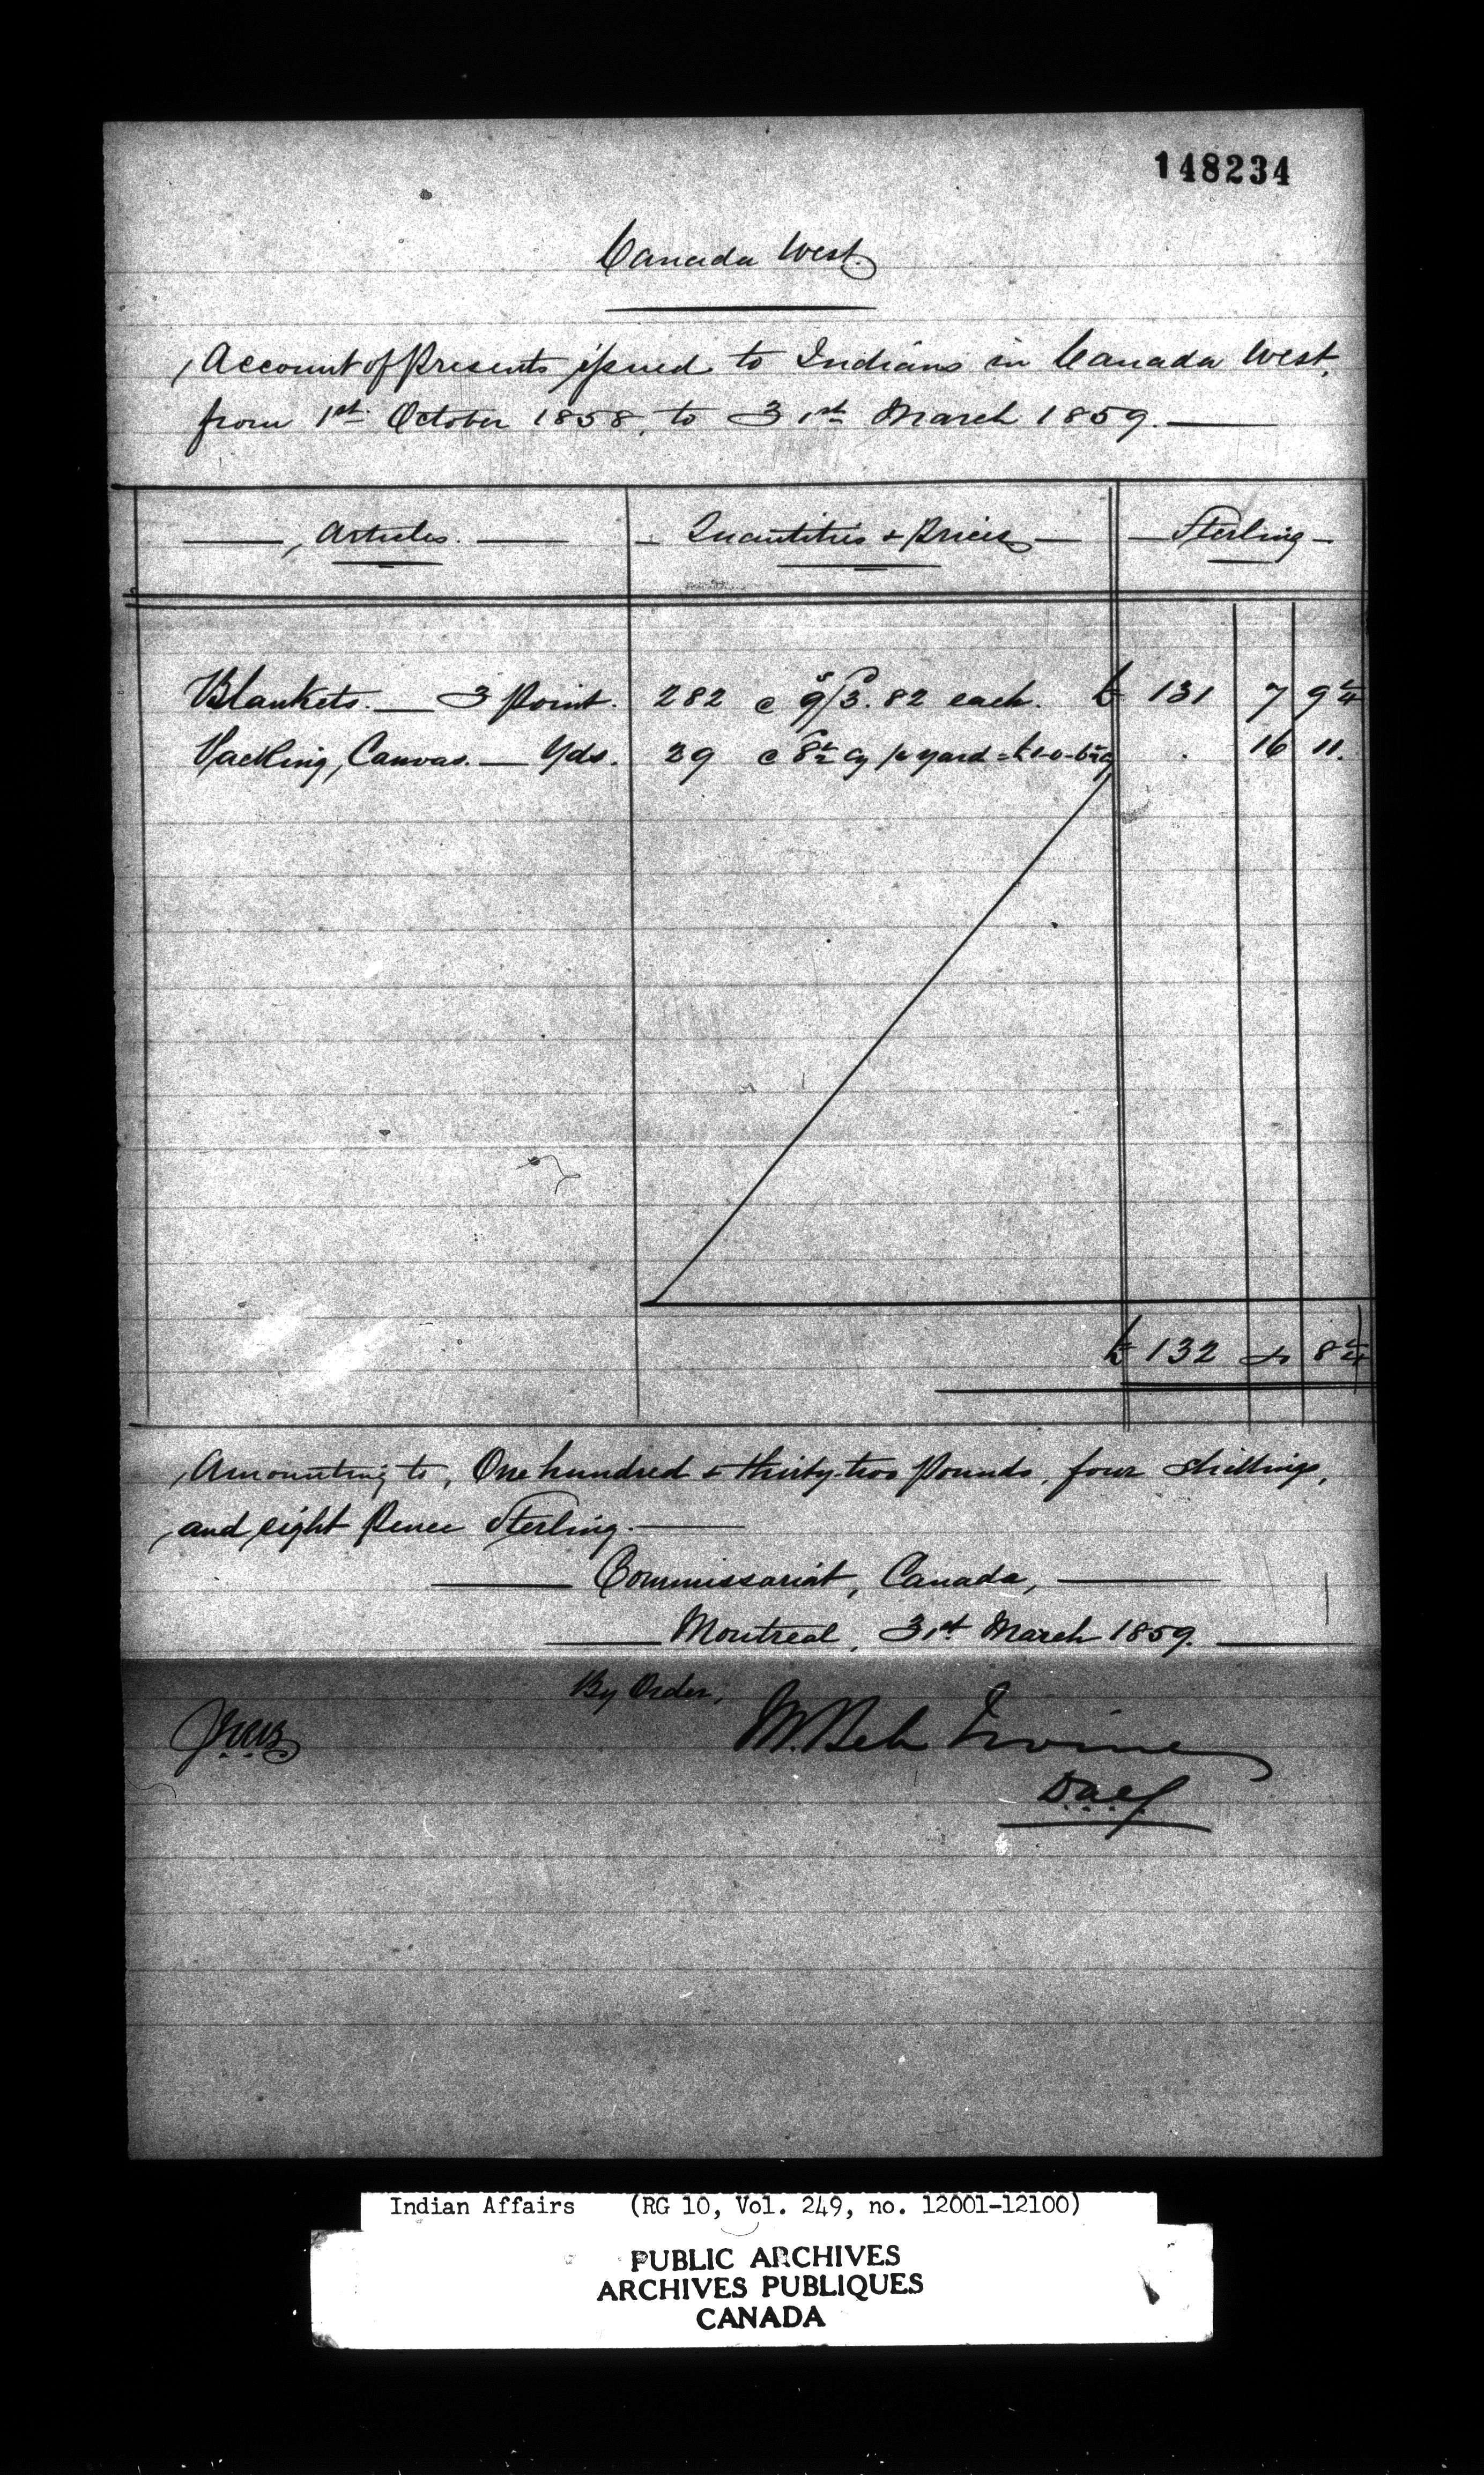 148234
Canada West.
Account of Presents issued to Indians in Canada West,
from 1st October 1858, to 31st March 1859.
Articles. Quantities & Prices Sterling
Blankets. 3 Point. 282 @ 9/3.82 each. £ 131 7 9
Packing, Canvas. Yds. 29 @ 8½ Cy p yard = £1-0-6½ Cy . 16 11.
£ 132 4 8
Amounting to, One hundred & thirty-two Pounds, four shillings,
and eight Pence Sterling.
Commissariat, Canada,
Montreal, 31st March 1859.
By Order,
Irvine
Indian Affairs (RG 10, Vol. 249, no. 12001-12100)
PUBLIC ARCHIVES
ARCHIVES PUBLIQUES
CANADA